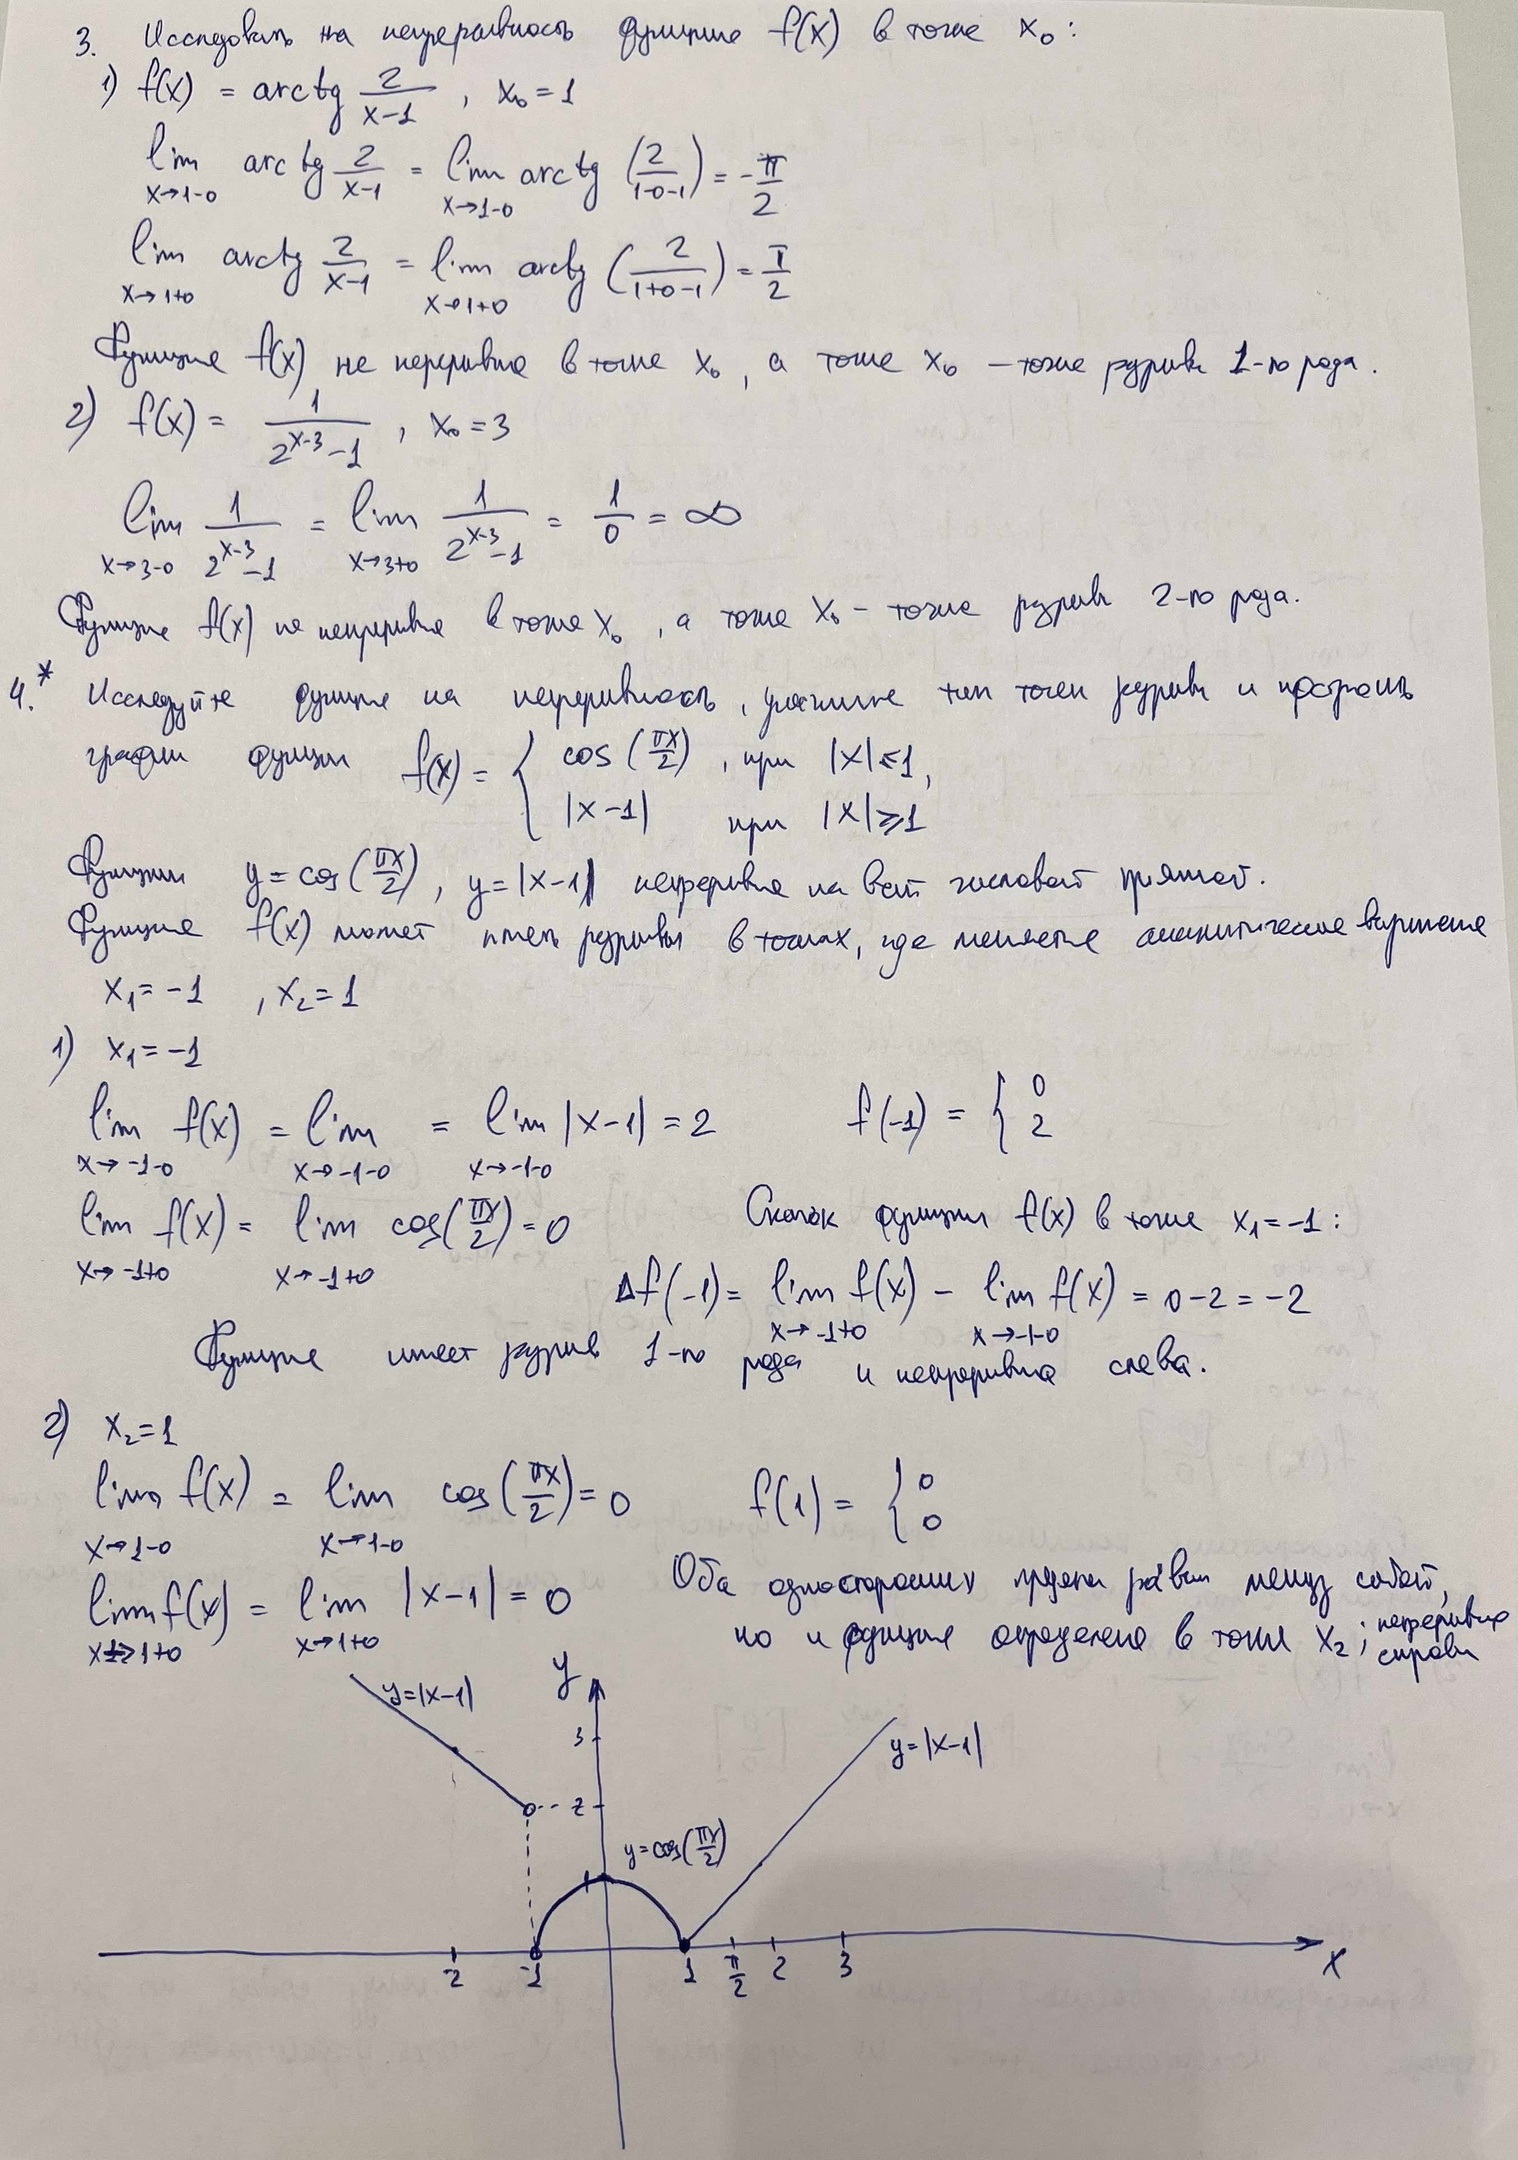 3. Исследовать на непрерывность функцию f(x) в точке x₀:
1) f(x) = arctg 2/(x-1) , x₀ = 1
lim x→1-0 arctg 2/(x-1) = lim x→1-0 arctg (2/(1-0-1)) = -π/2
lim x→1+0 arctg 2/(x-1) = lim x→1+0 arctg (2/(1+0-1)) = π/2
Функция f(x) не непрерывна в точке x₀, а точка x₀ – точка разрыва 1-го рода.
2) f(x) = 1/(2^(x-3) -1) , x₀ = 3
lim x→3-0 1/(2^(x-3) -1) = lim x→3+0 1/(2^(x-3) -1) = 1/0 = ∞
Функция f(x) не непрерывна в точке x₀, а точка x₀ – точка разрыва 2-го рода.
4.* Исследуйте функцию на непрерывность, укажите тип точек разрыва и построить
график функции f(x) = { cos (πx/2) , при |x| ⩽ 1,
|x-1| при |x| ⩾ 1
Функции y = cos(πx/2), y = |x-1| непрерывна на всей числовой прямой.
Функция f(x) может иметь разрывы в точках, где меняется аналитическое выражение
x₁ = -1 , x₂ = 1
1) x₁ = -1
lim x→-1-0 f(x) = lim x→-1-0 = lim x→-1-0 |x-1| = 2 f(-1) = { 0 2
lim x→-1+0 f(x) = lim x→-1+0 cos(πx/2) = 0 Скачок функции f(x) в точке x₁ = -1 :
Δf(-1) = lim x→-1+0 f(x) - lim x→-1-0 f(x) = 0-2 = -2
Функция имеет разрыв 1-го рода и непрерывна слева.
2) x₂ = 1
lim x→1-0 f(x) = lim x→1-0 cos(πx/2) = 0 f(1) = { 0 0
lim x→1+0 f(x) = lim x→1+0 |x-1| = 0 Оба односторонних предела равны между собой,
но и функция определена в точке x₂ ; непрерывна справа
y=|x-1| y
3
y=|x-1|
2
y=cos(πx/2)
1
-2 -1 1 π/2 2 3 x